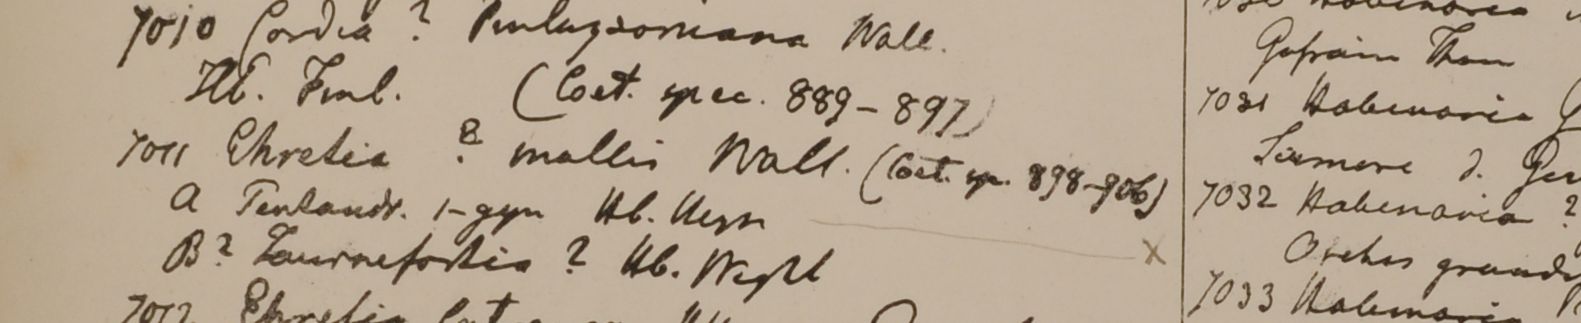 7010 Cordia ? Finlaysoniana Wall.
Hb. Finl. (Cat. spec. 889-897)
7011 Ehretia ? mollis Wall. (Cat. sp. 898-906)
A Pentandr. 1-gyn Hb. Heyn
B? Tournefortia ? Hb. Wight
7012 Ehretia
Habenaria
7031 Habenaria
7032 Habenaria ?
Orchis grandi
7033 Habenaria